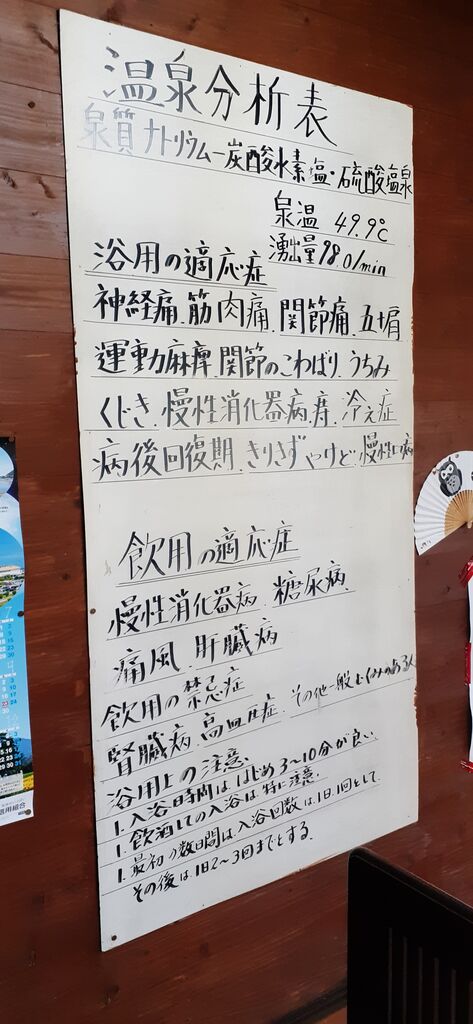 温泉分析表
泉質 ナトリウムー炭酸水素塩・硫酸塩泉
泉温 49.9℃
湧出量98.0/min
浴用の適応症
神経痛.筋肉痛.関節痛.五十肩
運動麻痺.関節のこわばり.うちみ
くじき.慢性消化器病.痔.冷え症
病後回復期.きりきず.やけど.慢性
飲用の適応症
慢性消化器病.糖尿病.
痛風.肝臓病
飲用の禁忌症
腎臓病.高血圧症.その他一般むくみのある人
浴用上の注意.
1.入浴時間ははじめ3〜10分が良い.
1.飲酒しての入浴は特に注意.
1.最初の数日間は.入浴回数は.1日.1回として.
その後は.1日2〜3回までとする.
信用組合